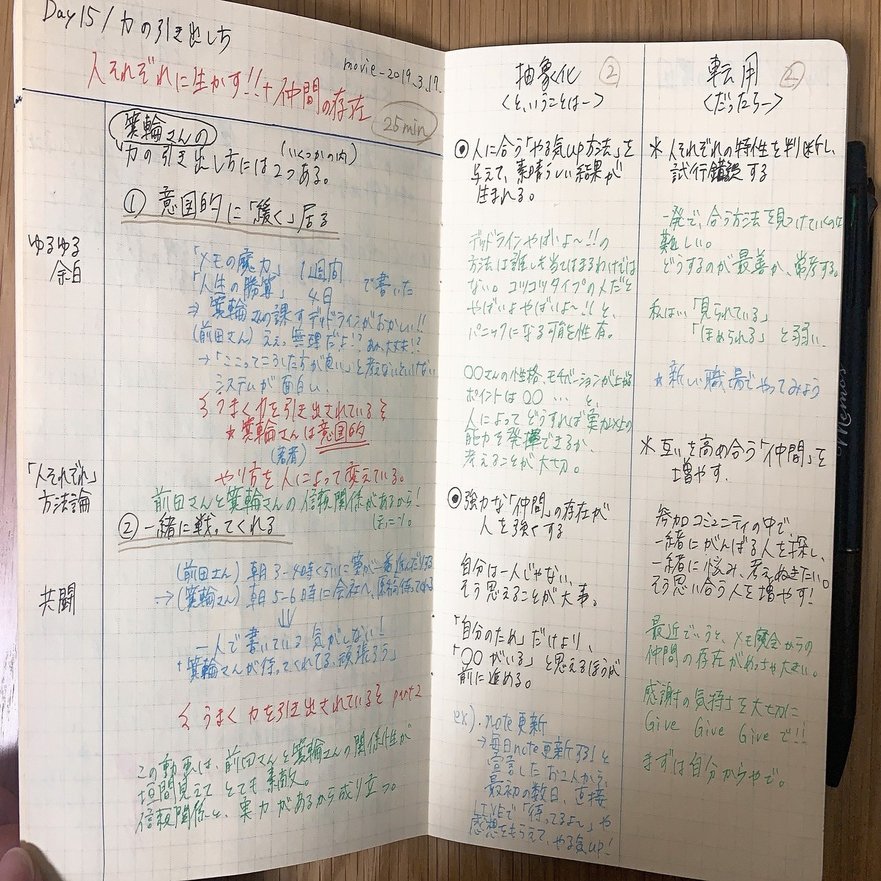 Day 15 / 力の引き出し方
movie-2019.3.17.
人それぞれに生かす!!+仲間の存在
25min
箕輪さんの
(いくつかの内)
力の引き出し方には2つある。
① 意図的に「緩く」居る
ゆるゆる
余白
「メモの魔力」 1週間
「人生の勝算」 4日 で書いた
⇒ 箕輪さんの課すデッドラインがおかしい!!
(前田さん) えぇ、無理だよ!? あれ、大丈夫!?
→「ここってこうした方が良い」と考えないといけない
システムが面白い
うまく力を引き出されている
★ 箕輪さんは意図的
(著者)
やり方を人によって変えている。
「人それぞれ」
方法論
前田さんと箕輪さんの信頼関係があるから!
② 一緒に戦ってくれる
共闘
(前田さん) 朝3-4時くらいに筆が一番進んだりする
→(箕輪さん) 朝5-6時に会社へ、原稿待っててくれる
⇓
一人で書いている気がしない!
「箕輪さんが待ってくれてる、頑張ろう」
うまく力を引き出されている part2
この動画は、前田さんと箕輪さんの関係性が
垣間見えて とても 素敵。
信頼関係と、実力があるから成り立つ。
抽象化 ②
<と、いうことは->
◉ 人に合う「やる気up方法」を
与えて、素晴らしい結果が
生まれる。
デッドラインやばいよ〜!!の
方法は誰しも当てはまるわけでは
ない。コツコツタイプの人だと
やばいよやばいよ〜!!と、
パニックになる可能性有。
○○さんの性格、モチベーションが上がる
ポイントは○○ … と、
人によってどうすれば実力以上の
能力を発揮できるか
考えることが大切。
◉ 強力な「仲間」の存在が
人を強くする
自分は一人じゃない、
そう思えることが大事。
「自分のため」だけより、
「○○がいる」と思えるほうが
前に進める。
ex). note更新
→ 毎日note更新する!と
宣言したお2人から、
最初の数日、直接
LINEで「待ってるよ〜」や
感想をもらえて、やる気up!
転用 ②
<だったら->
* 人それぞれの特性を判断し、
試行錯誤する
一発で、合う方法を見つけていくのは
難しい。
どうするのが最善か、常考する。
私は、「見られている」
「ほめられる」と弱い.
★ 新しい職場でやってみよう
* 互いを高め合う「仲間」を
増やす.
参加コミュニティの中で
一緒にがんばる人を探し、
一緒に悩み、考えぬきたい。
そう思い合う人を増やす!
最近でいうと、メモ魔会からの
仲間の存在がめっちゃ大きい。
感謝の気持ちを大切に
Give Give Giveで!!
まずは自分からやで。
Memos